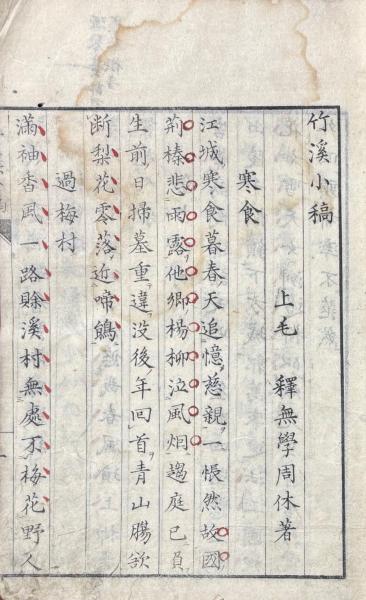 竹溪小稿
上毛　釋無學周休著
寒食
江城寒食暮春天追憶慈親一悵然故國
荊榛悲雨露他鄉楊柳泣風烟趨庭已負
生前日掃墓重違沒後年回首青山腸欲
断梨花零落近啼鵑
過梅村
滿袖香風一路賖溪村無處不梅花野人